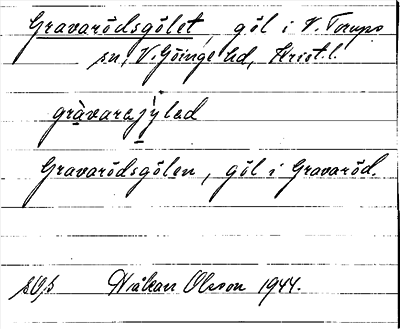 Gravarödsgölet, göl i V. Torups
sn, V. Göinge hd, Krist. l.
gràvarajýlæd
Gravarödsgölen, göl i Gravaröd.
Håkan Olsson 1944.